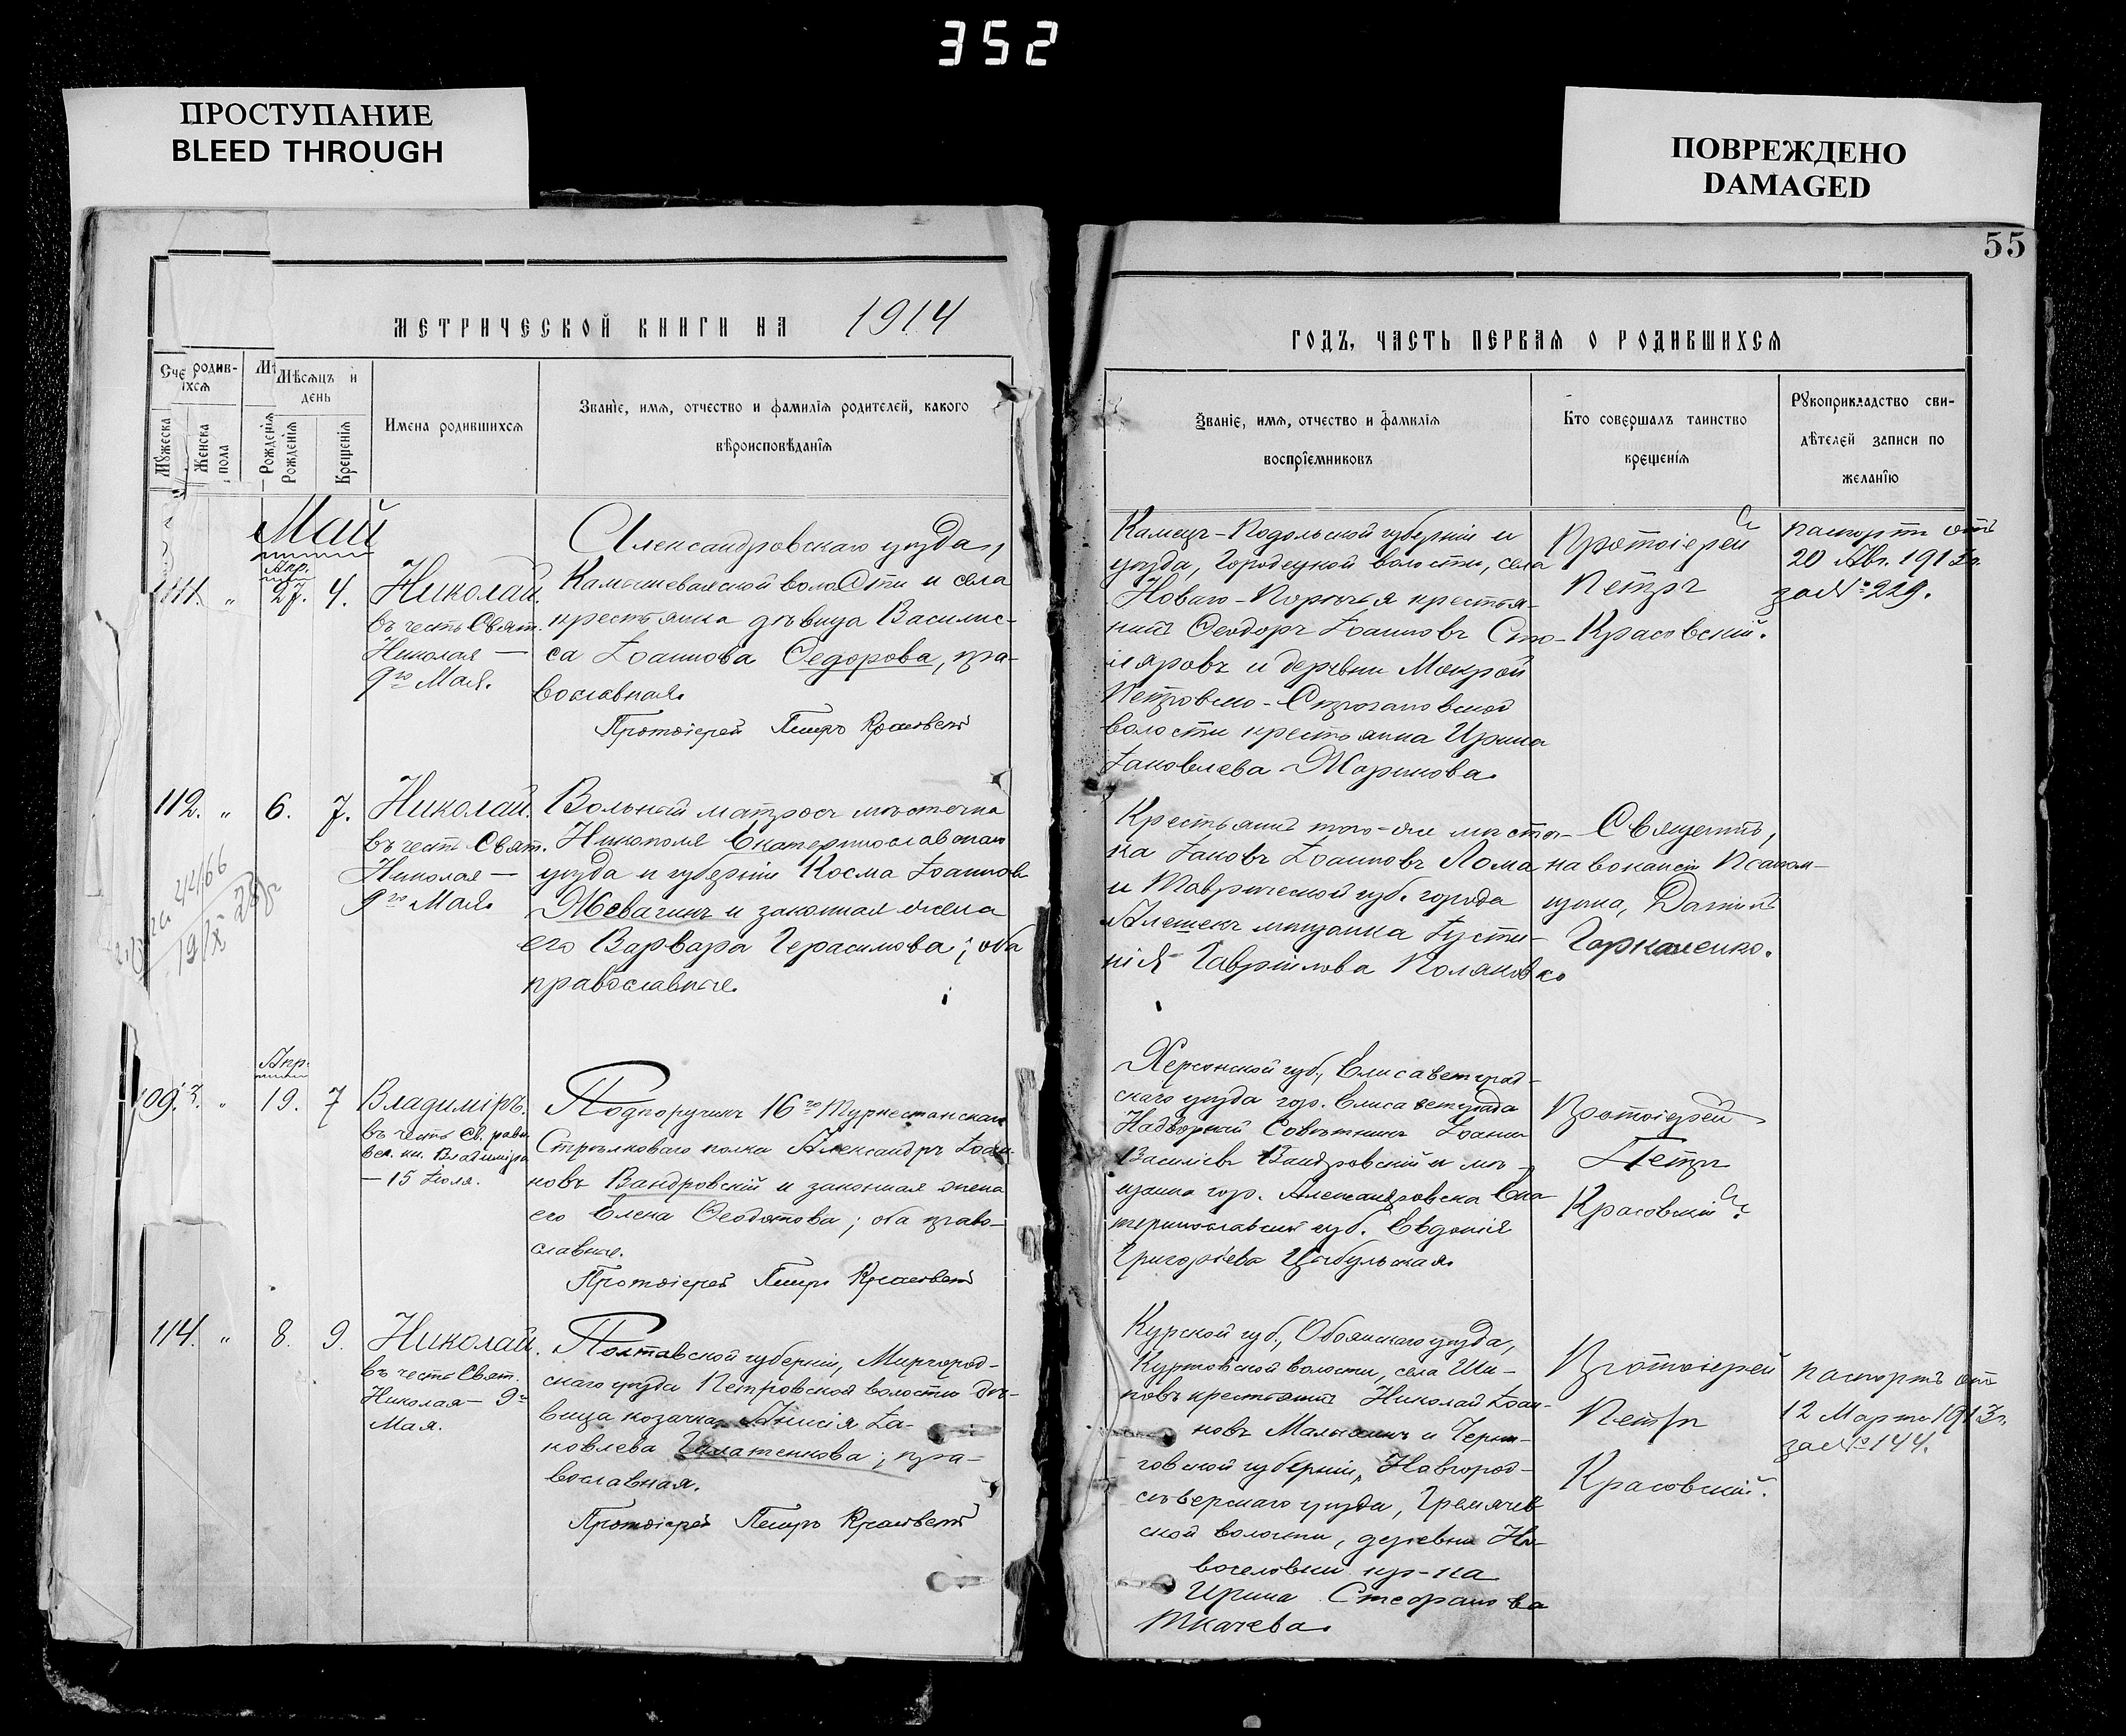 352
ПРОСТУПАНИЕ
BLEED THROUGH
ПОВРЕЖДЕНО
DAMAGED
55
МЕТРИЧЕСКОЙ КНИГИ НА 1914
ГОДЪ, ЧАСТЬ ПЕРВАЯ О РОДИВШИХСЯ
Сче родив-
іхся
Мѣсяцъ и
день
Мужеска
Женска
пола
Рожденія
Рожденія
Крещенія
Имена родившихся
Званіе, имя, отчество и фамилія родителей, какого
вѣроисповѣданія
Званіе, имя, отчество и фамилія
воспріемниковъ
Кто совершалъ таинство
крещенія
Рукоприкладство сви-
дѣтелей записи по
желанію
Май
Апр.
111. " 27. 4.
Николай.
въ честь Свят.
Николая —
9го Мая.
Александровскаго уѣзда,
Камышевахской волости и села
крестьянка дѣвица Василис-
са Іоаннова Ѳедорова, пра-
вославная.
Протоіерей Петръ Красовскій
Каменъ-Подольской губерніи и
уѣзда, Городецкой волости, села
Новаго-Порѣчья крестья-
нинъ Ѳеодоръ Іоанновъ Сто-
ляровъ и деревни Мокрой
Петровско-
волости крестьянка Ирина
Іаковлева Жорикова.
Протоіерей
Петръ
Красовскій.
паспортъ отъ
20 Авг. 191
за № 229.
112. " 6. 7.
Николай.
въ честь Свят.
Николая —
9го Мая.
Вольный матросъ мѣстечка
Никополя Екатеринославскаго
уѣзда и губерніи Косма Іоанновъ
Жевагинъ и законная жена
его Варвара Герасимова; оба
православные.
Крестьянинъ того-же мѣстеч-
ка Іаковъ Іоанновъ Лома
и Таврической губ. города
Алешекъ мѣщанка Іусти-
нія Гавріилова Полякова
Священникъ,
на вакансіи Псалом-
щика, Даніилъ
Горкаленко.
Апр.
19. 7
Владиміръ.
въ честь Св. равн.
вел. кн. Владиміра
— 15 Іюля.
Подпоручикъ 16го Туркестанскаго
Стрѣлковаго полка Александръ Іоан-
новъ Вандровскій и законная жена
его Елена Ѳеодотова; оба право-
славные.
Протоіерей Петръ Красовскій
Херсонской губ., Елисаветград-
скаго уѣзда гор. Елисаветграда
Надворный Совѣтникъ Іоаннъ
Василіевъ Вандровскій и мѣ-
щанка гор. Александровска Ека-
теринославской губ. Евдокія
Григоріева Цыбульская.
Протоіерей
Петръ
Красовскій.
114. " 8. 9.
Николай.
въ честь Свят.
Николая — 9го
Мая.
Полтавской губерніи, Миргород-
скаго уѣзда Петровской волости дѣ-
вица козачка Анисія Іа-
ковлева Галатенкова; пра-
вославная.
Протоіерей Петръ Красовскій
Курской губ., Обоянскаго уѣзда,
волости, села Ши-
повъ крестьянинъ Николай Іоан-
новъ Малыхинъ и Черни-
говской губерніи, Новгород-
сѣверскаго уѣзда, Гремячев-
ской волости, деревни Но-
воселовки кр-ка
Ирина Стефанова
Ткачева.
Протоіерей
Петръ
Красовскій.
паспортъ отъ
12 Марта 1913г.
за № 144.